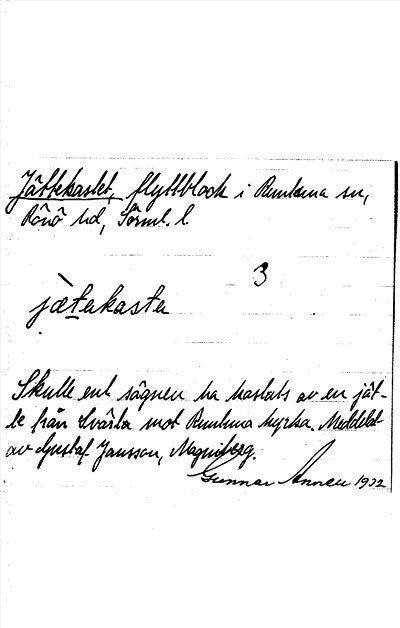 Jättekastet, flyttblock i Runtuna sn,
Rönö hd, Sörml. l.
3
jæ̀takasta
Skulle enl sägnen ha kastats av en jät-
te från Svärta mot Runtuna kyrka. Meddelat
av Gustaf Jansson, Magniberg.
Gunnar 1932